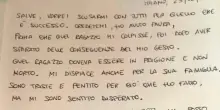 SALVE, VORREI SCUSARMI CON TUTTI PER QUELLO CHE
È SUCCESSO. CREDETEMI, HO AVUTO PAURA
PRIMA CHE QUEL RAGAZZO MI COLPISSE, POI DOPO AVER
SAPUTO DELLE CONSEGUENZE DEL MIO GESTO.
QUEL RAGAZZO DOVEVA ESSERE IN PRIGIONE E NON
MORTO. MI DISPIACE ANCHE PER LA SUA FAMIGLIA,
SONO TRISTE E PENTITO PER CIÒ CHE HO FATTO,
MA MI SONO SENTITO DISPERATO.